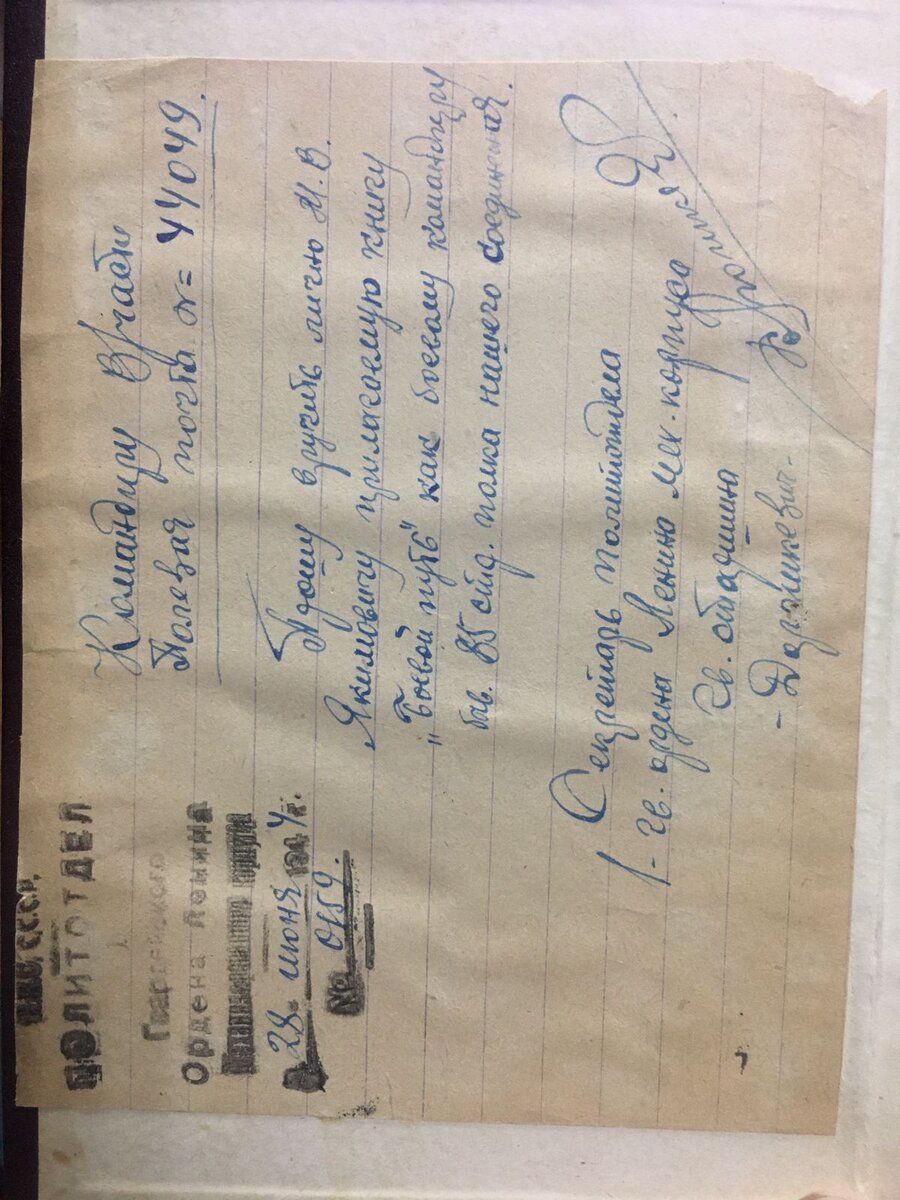 С.С.С.Р.
ПОЛИТОТДЕЛ
Гвардейского
Ордена Ленина
28 июня 1944 г.
№ 0159.
Командиру В/части
Полевая почта № 44049.
Прошу вручить лично И. В.
Якимовичу прилагаемую книгу
"Боевой путь" как боевому командиру
быв. 85 полка нашего соединения.
Секретарь Политотдела
1-гв. ордена Ленина мех. корпуса
Гв.